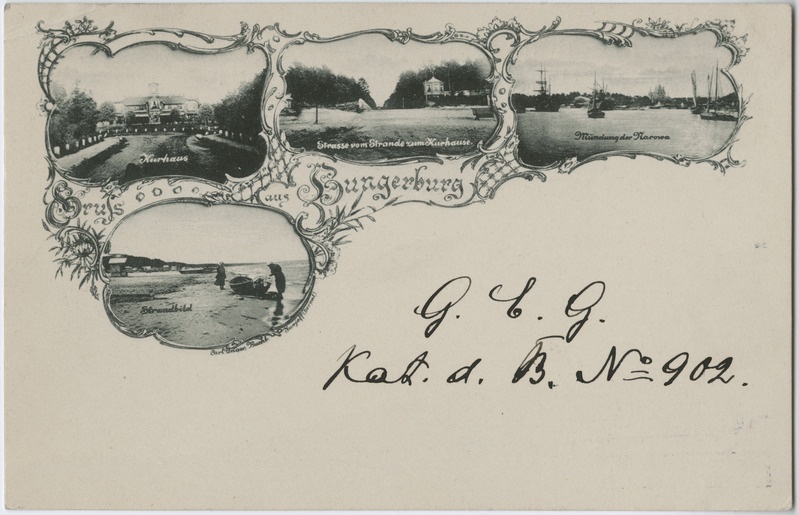 Kurhaus
Strasse vom Strande zum Kurhause.
Mündung der Narowa
Gruss aus Hungerburg
Strandbild
G. E. G.
Kat. d. B. No 902.